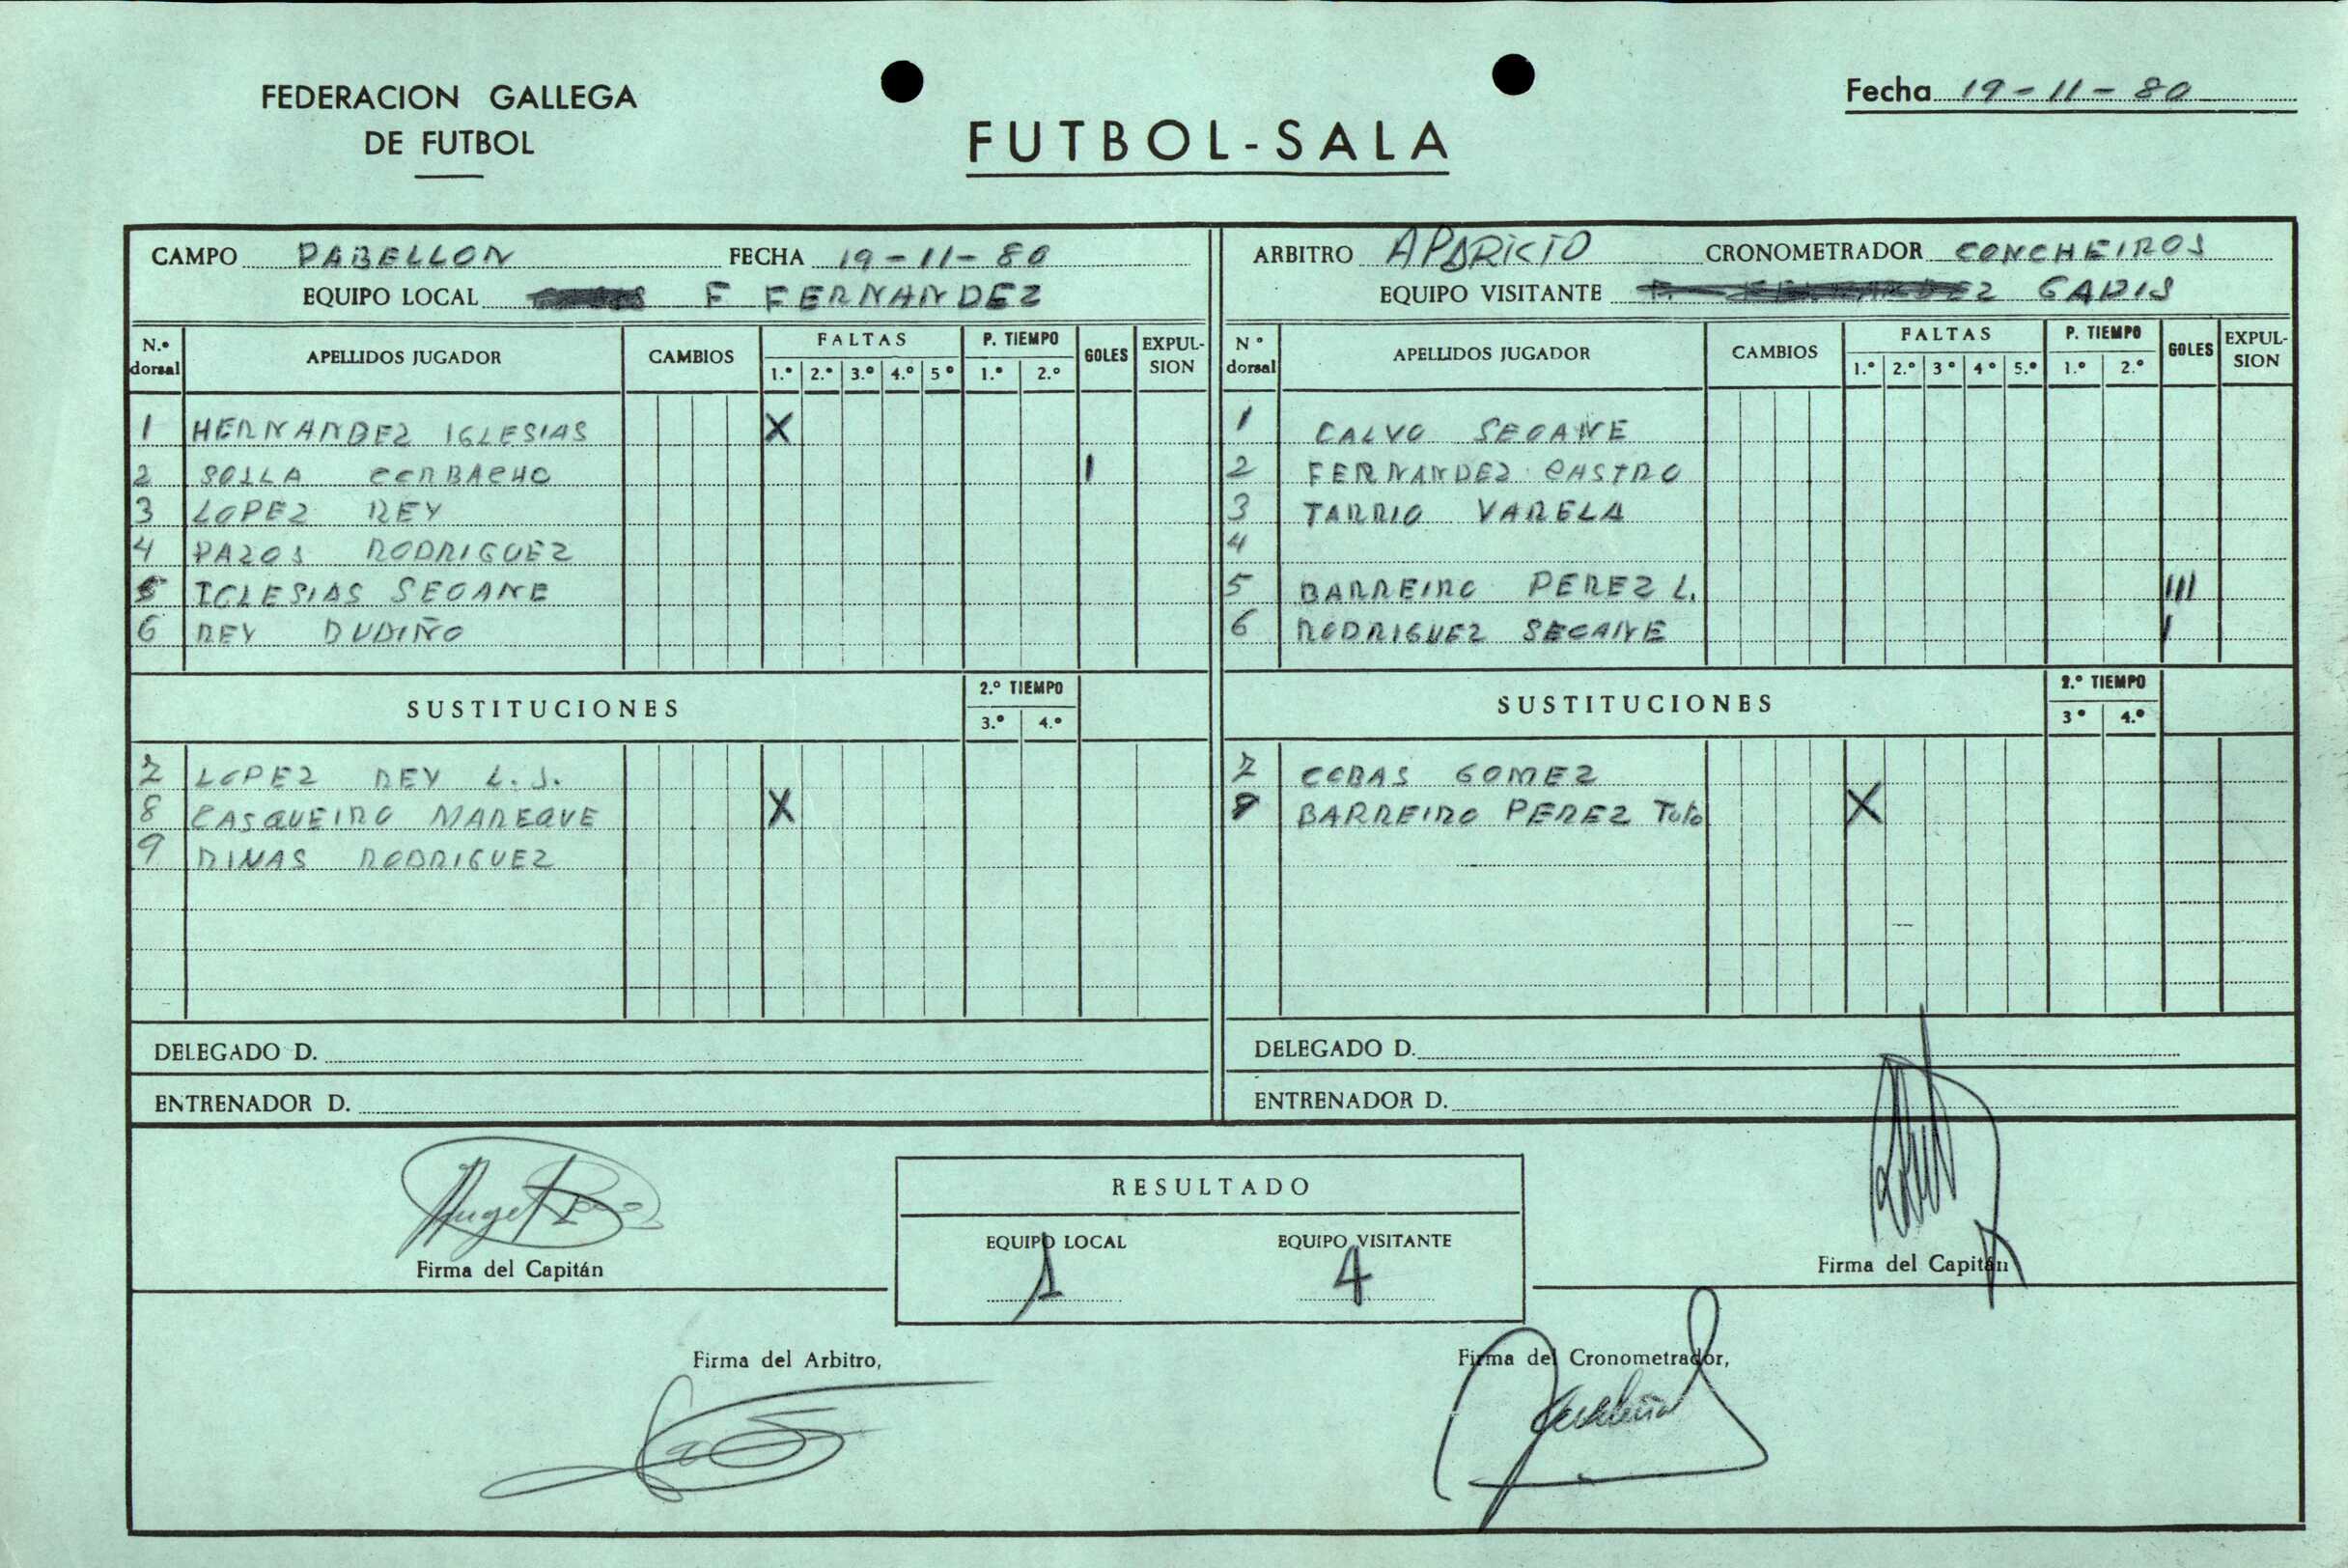 FEDERACION GALLEGA
DE FUTBOL
FUTBOL-SALA
Fecha 19-11-80
CAMPO PABELLON FECHA 19-11-80
EQUIPO LOCAL F FERNANDEZ
N.º dorsal APELLIDOS JUGADOR CAMBIOS FALTAS 1.º 2.º 3.º 4.º 5º P. TIEMPO 1.º 2.º GOLES EXPULSION
1 HERNANDEZ IGLESIAS X
2 SOLLA CERBACHO I
3 LOPEZ REY
4 PAZOS RODRIGUEZ
5 IGLESIAS SEOANE
6 REY DUDIÑO
SUSTITUCIONES 2.º TIEMPO 3.º 4.º
7 LOPEZ REY L. J.
8 CASQUEIRO MAREQUE X
9 DIMAS RODRIGUEZ
DELEGADO D.
ENTRENADOR D.
ARBITRO APARICIO CRONOMETRADOR CONCHEIROS
EQUIPO VISITANTE GADIS
Nº dorsal APELLIDOS JUGADOR CAMBIOS FALTAS 1.º 2.º 3º 4º 5.º P. TIEMPO 1.º 2.º GOLES EXPULSION
1 CALVO SEOANE
2 FERNANDEZ CASTRO
3 TARRIO VARELA
4
5 BARREIRO PEREZ L. III
6 RODRIGUEZ SEOANE I
SUSTITUCIONES 2.º TIEMPO 3º 4.º
7 COBAS GOMEZ
8 BARREIRO PEREZ Tuto X
DELEGADO D.
ENTRENADOR D.
Firma del Capitán
RESULTADO
EQUIPO LOCAL EQUIPO VISITANTE
1 4
Firma del Capitán
Firma del Arbitro,
Firma del Cronometrador,